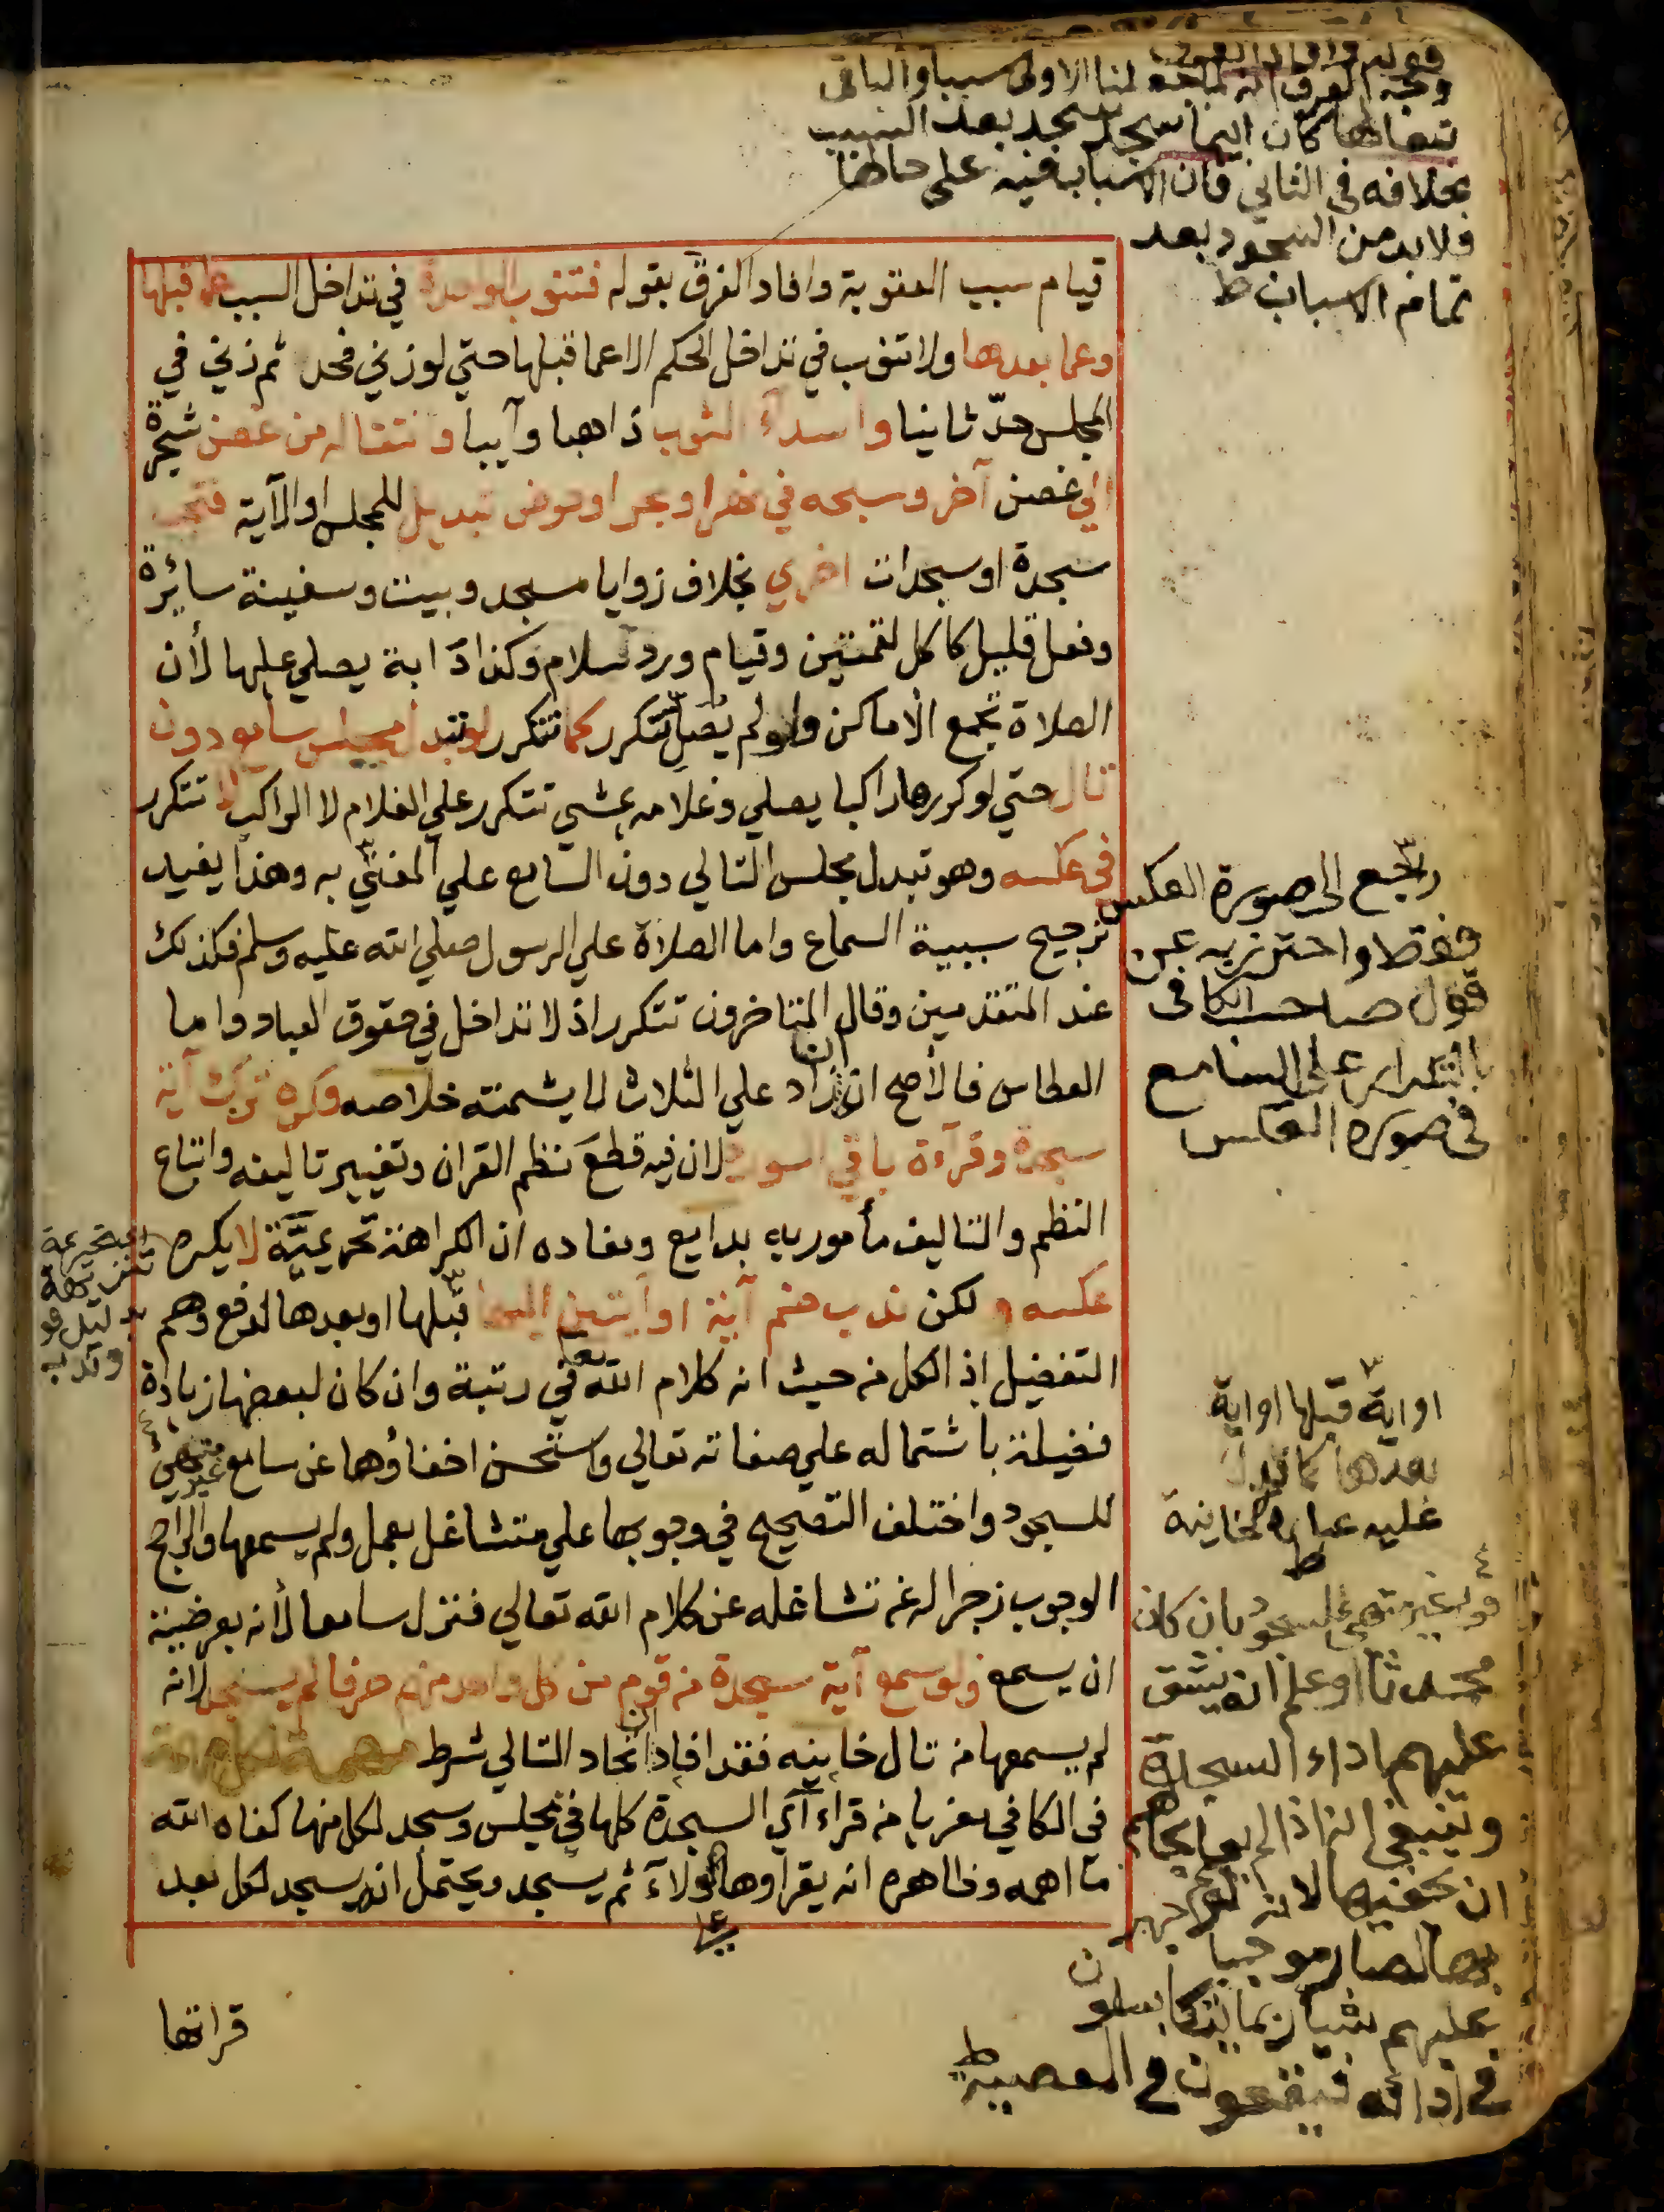 قوله وافاد الفرق
وجه الفرق انه لما جعلنا الاولى سببا والباقى
تبعا لها كان ايما سجد سجد بعد السبب
بخلافه فى الثاني فان الاسباب فيه على حالها
ولا بد من السجود بعد
تمام الاسباب ط
قيام سبب العقوبة وافاد الفرق بقوله فتنوب الواحدة في تداخل السبب عما قبلها
وعما بعدها ولا تنوب في تداخل الحكم الا عما قبلها حتي لو زني فحد ثم زني في
المجلس حدّ ثانيا واسداء الثوب ذاهبا وآيبا وانتقاله من غصن شجرة
الي غصن آخر وسبحه في نهر او حوض تبديل للمجلس او الآية فتجب
سجدة او سجدات اخري بخلاف زوايا مسجد وبيت وسفينة سائرة
وفعل قليل كاكل لقمتين وقيام ورد سلام وكذا دابة يصلي عليها لأن
الصلاة تجمع الأماكن ولو لم يصل تتكرر كما تتكرر لو تبدل مجلس سامع دون
تال حتي لو كررها راكبا يصلي وغلامه يمشي تتكرر علي الغلام لا الراكب لا تتكرر
في عكسه وهو تبدل مجلس التالي دون السامع علي المفتي به وهذا يفيد
ترجيح سببية السماع واما الصلاة علي الرسول صلي الله عليه وسلم فكذلك
عند المتقدمين وقال المتاخرون تتكرر اذ لا تداخل في حقوق العباد واما
العطاس فالأصح ان زاد علي الثلاث لا يشمته خلاصه وكره ترك آية
سجدة وقرآءة باقي السورة لان فيه قطع نظم القران وتغيير تاليفه واتباع
النظم والتاليف مأمور به بدايع ومفاده ان الكراهة تحريميّة لا يكره
عكسه و لكن ندب ضم آية او آيتين اليها قبلها او بعدها لدفع وهم
التفضيل اذ الكل من حيث انه كلام الله تعا في رتبة وان كان لبعضها زيادة
فضيلة باشتماله علي صفاته تعالي واستحسن اخفاؤها عن سامع غير متهئ
للسجود واختلف التصحيح في وجوبها علي متشاغل بعمل ولم يسمعها والراجح
الوجوب زجرا له عن تشاغله عن كلام الله تعالي فنزل سامعا لأنه بعرضية
ان يسمع ولو سمع آية سجدة من قوم من كل واحد منهم حرفا لم يسجد لانه
لم يسمعها من تال خانيه فقد افاد ان اتحاد التالي شرط مهمة لكل مهمة
في الكافي معزيا من قراء آي السجدة كلها في مجلس وسجد لكل منها كفاه الله
ما اهمه وظاهره انه يقراوها ولاء ثم يسجد ويحتمل انه يسجد لكل بعد
قراتها
رجع الى صورة العكس
فقط واحترز به عن
قول صاحب الكافى
بالتكرار على السامع
فى صورة العكس
تنزيهة
بدليل قو
وندب
او اية قبلها او اية
بعدها كما تدل
عليه عبارة الخانية
ط
قوله غير متهئ للسجود بان كان
محدثا او علم انه يشق
عليهم اداء السجدة
وينبغي انه اذا لم يعلم بحالهم
ان يخفيها لانه لو جهر
بها لصار موجبا
عليهم شيأ ربما يتكاسلون
في ادائه فيقعون في المعصية ط